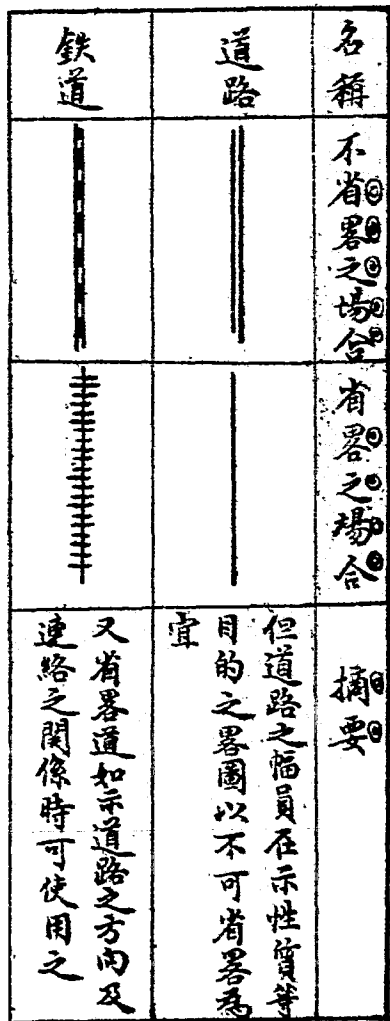 名稱
不省畧之場合
省畧之場合
摘要
道路
但道路之幅員在示性質等
目的之畧圖以不可省畧為
宜
鉄道
又省畧道如示道路之方向及
連絡之関係時可使用之